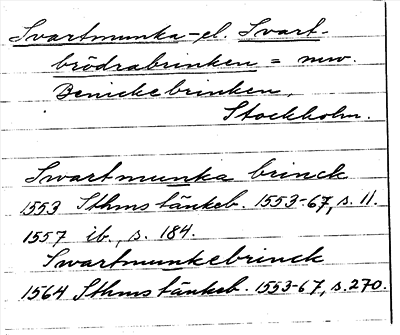 Svartmunka- el. Svart-
brödrabrinken = nuv.
Benickebrinken,
Stockholm.
Swartmunka brinck
1553 Sthms tänkeb. 1553-67, s. 11.
1557 ib., s. 184.
Swartmunkebrinck
1564 Sthms tänkeb. 1553-67, s. 270.